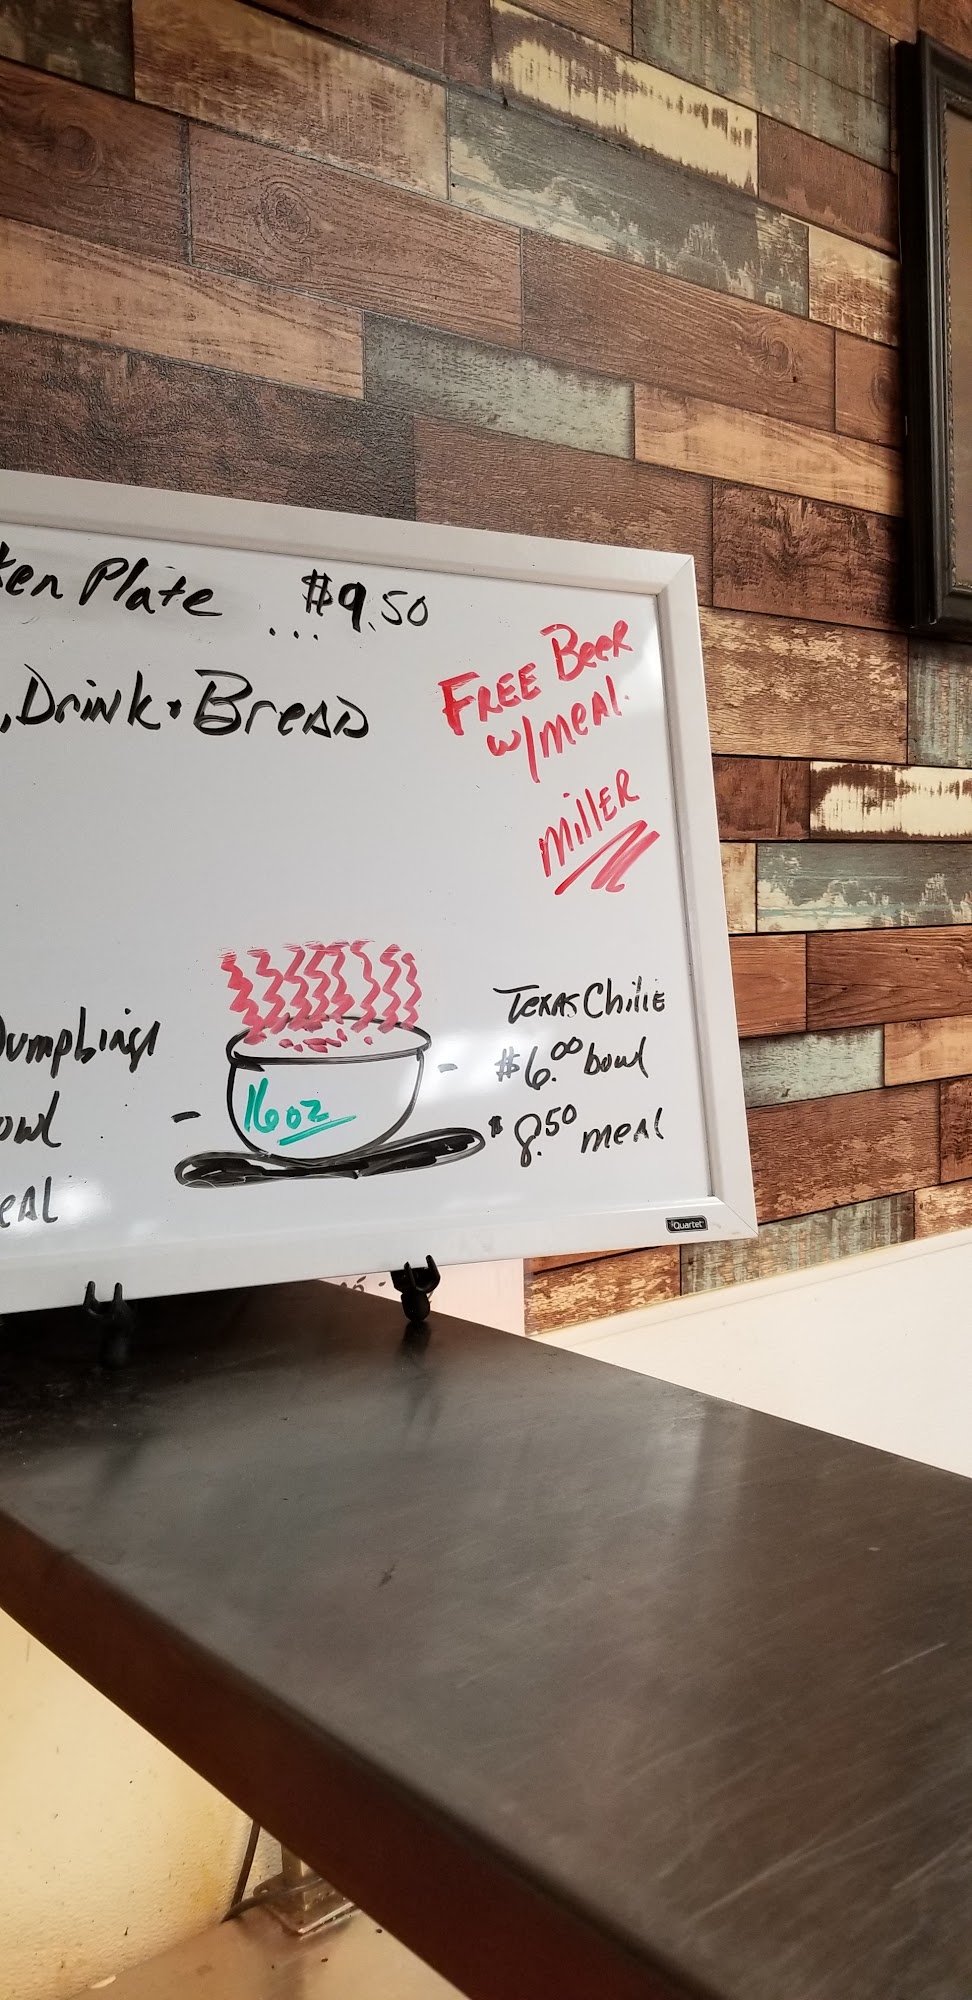 Plate ... $9.50
, Drink & Bread
FREE Beer
w/meal.
Miller
Dumplings
16oz
Texas Chilie
- $6.00 bowl
$8.50 meal
Quartet